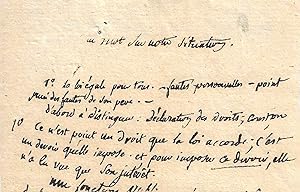 un mot sur notre situation.
1° la loi égale pour tous. — fautes personnelles — point
puni des fautes de son père. —
d'abord à distinguer. déclaration des droits; 
1° Ce n'est point un droit que la loi accorde; c'est
un devoir qu'elle impose. et pour imposer ce devoir, elle
n'a la vue que 
une fonction